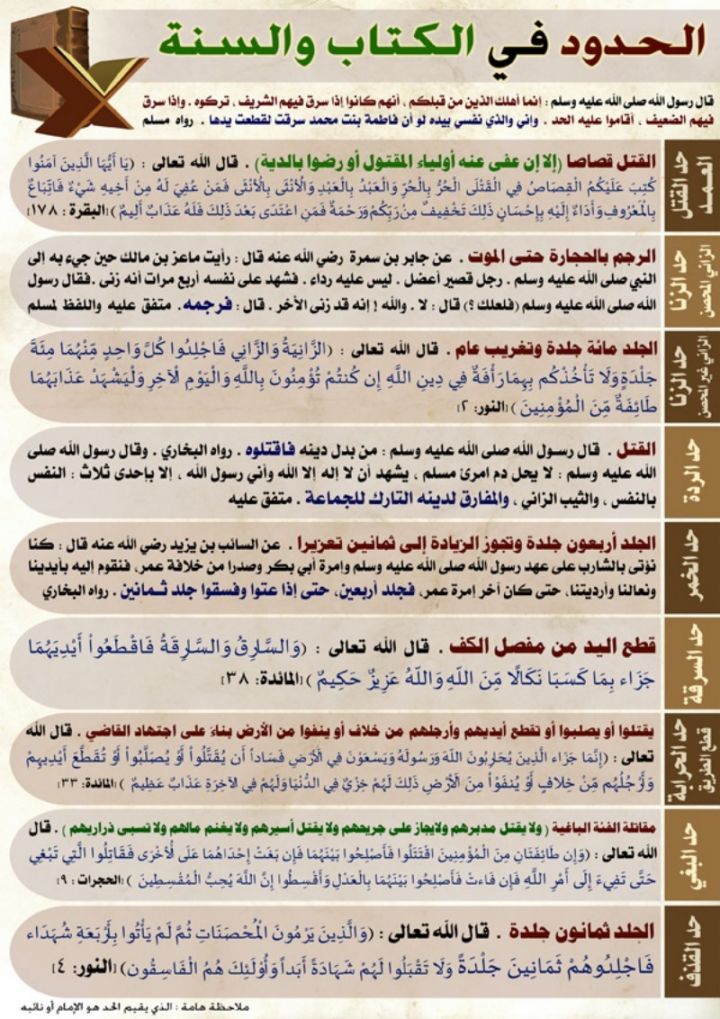 الحدود في الكتاب والسنة
قال رسول الله صلى الله عليه وسلم : إنما أهلك الذين من قبلكم ، أنهم كانوا إذا سرق فيهم الشريف ، تركوه . وإذا سرق
فيهم الضعيف ، أقاموا عليه الحد . واني والذي نفسي بيده لو أن فاطمة بنت محمد سرقت لقطعت يدها . رواه مسلم
حد القتل العمد
القتل قصاصا (إلا إن عفى عنه أولياء المقتول أو رضوا بالدية) . قال الله تعالى : (يَا أَيُّهَا الَّذِينَ آمَنُوا
كُتِبَ عَلَيْكُمُ الْقِصَاصُ فِي الْقَتْلَى الْحُرُّ بِالْحُرِّ وَالْعَبْدُ بِالْعَبْدِ وَالْأُنْثَى بِالْأُنْثَى فَمَنْ عُفِيَ لَهُ مِنْ أَخِيهِ شَيْءٌ فَاتِّبَاعٌ
بِالْمَعْرُوفِ وَأَدَاءٌ إِلَيْهِ بِإِحْسَانٍ ذَلِكَ تَخْفِيفٌ مِنْ رَبِّكُمْ وَرَحْمَةٌ فَمَنِ اعْتَدَى بَعْدَ ذَلِكَ فَلَهُ عَذَابٌ أَلِيمٌ )[البقرة : ١٧٨]
حد الزنا
الزاني المحصن
الرجم بالحجارة حتى الموت . عن جابر بن سمرة رضي الله عنه قال : رأيت ماعز بن مالك حين جيء به إلى
النبي صلى الله عليه وسلم . رجل قصير أعضل . ليس عليه رداء . فشهد على نفسه أربع مرات أنه زنى .فقال رسول
الله صلى الله عليه وسلم (فلعلك ؟) قال : لا . والله ! إنه قد زنى الأخر . قال : فرجمه . متفق عليه واللفظ لمسلم
حد الزنا
الزاني غير المحصن
الجلد مائة جلدة وتغريب عام . قال الله تعالى : (الزَّانِيَةُ وَالزَّانِي فَاجْلِدُوا كُلَّ وَاحِدٍ مِّنْهُمَا مِئَةَ
جَلْدَةٍ وَلَا تَأْخُذْكُم بِهِمَا رَأْفَةٌ فِي دِينِ اللَّهِ إِن كُنتُمْ تُؤْمِنُونَ بِاللَّهِ وَالْيَوْمِ الْآخِرِ وَلْيَشْهَدْ عَذَابَهُمَا
طَائِفَةٌ مِّنَ الْمُؤْمِنِينَ )[النور: ٢]
حد الردة
القتل . قال رسول الله صلى الله عليه وسلم : من بدل دينه فاقتلوه . رواه البخاري . وقال رسول الله صلى
الله عليه وسلم : لا يحل دم امرئ مسلم ، يشهد أن لا إله إلا الله وأني رسول الله ، إلا بإحدى ثلاث : النفس
بالنفس ، والثيب الزاني ، والمفارق لدينه التارك للجماعة . متفق عليه
حد الخمر
الجلد أربعون جلدة وتجوز الزيادة إلى ثمانين تعزيرا . عن السائب بن يزيد رضي الله عنه قال : كنا
نؤتى بالشارب على عهد رسول الله صلى الله عليه وسلم وإمرة أبي بكر وصدرا من خلافة عمر، فنقوم إليه بأيدينا
ونعالنا وأرديتنا، حتى كان آخر إمرة عمر، فجلد أربعين، حتى إذا عتوا وفسقوا جلد ثمانين . رواه البخاري
حد السرقة
قطع اليد من مفصل الكف . قال الله تعالى : (وَالسَّارِقُ وَالسَّارِقَةُ فَاقْطَعُواْ أَيْدِيَهُمَا
جَزَاء بِمَا كَسَبَا نَكَالًا مِّنَ اللّهِ وَاللّهُ عَزِيزٌ حَكِيمٌ )[المائدة: ٣٨]
حد الحرابة
قطع الطريق
يقتلوا أو يصلبوا أو تقطع أيديهم وأرجلهم من خلاف أو ينفوا من الأرض بناءً على اجتهاد القاضي . قال الله
تعالى : (إِنَّمَا جَزَاء الَّذِينَ يُحَارِبُونَ اللّهَ وَرَسُولَهُ وَيَسْعَوْنَ فِي الأَرْضِ فَسَاداً أَن يُقَتَّلُواْ أَوْ يُصَلَّبُواْ أَوْ تُقَطَّعَ أَيْدِيهِمْ
وَأَرْجُلُهُم مِّنْ خِلافٍ أَوْ يُنفَوْاْ مِنَ الأَرْضِ ذَلِكَ لَهُمْ خِزْيٌ فِي الدُّنْيَا وَلَهُمْ فِي الآخِرَةِ عَذَابٌ عَظِيمٌ )[المائدة: ٣٣]
حد البغي
مقاتلة الفئة الباغية ( ولا يقتل مدبرهم ولا يجاز على جريحهم ولا يقتل أسيرهم ولا يغنم مالهم ولا تسبى ذراريهم ) . قال
الله تعالى : (وَإِن طَائِفَتَانِ مِنَ الْمُؤْمِنِينَ اقْتَتَلُوا فَأَصْلِحُوا بَيْنَهُمَا فَإِن بَغَتْ إِحْدَاهُمَا عَلَى الْأُخْرَى فَقَاتِلُوا الَّتِي تَبْغِي
حَتَّى تَفِيءَ إِلَى أَمْرِ اللَّهِ فَإِن فَاءتْ فَأَصْلِحُوا بَيْنَهُمَا بِالْعَدْلِ وَأَقْسِطُوا إِنَّ اللَّهَ يُحِبُّ الْمُقْسِطِينَ )[الحجرات : ٩]
حد القذف
الجلد ثمانون جلدة . قال الله تعالى : (وَالَّذِينَ يَرْمُونَ الْمُحْصَنَاتِ ثُمَّ لَمْ يَأْتُوا بِأَرْبَعَةِ شُهَدَاء
فَاجْلِدُوهُمْ ثَمَانِينَ جَلْدَةً وَلَا تَقْبَلُوا لَهُمْ شَهَادَةً أَبَداً وَأُوْلَئِكَ هُمُ الْفَاسِقُونَ) [النور: ٤]
ملاحظة هامة : الذي يقيم الحد هو الإمام أو نائبه